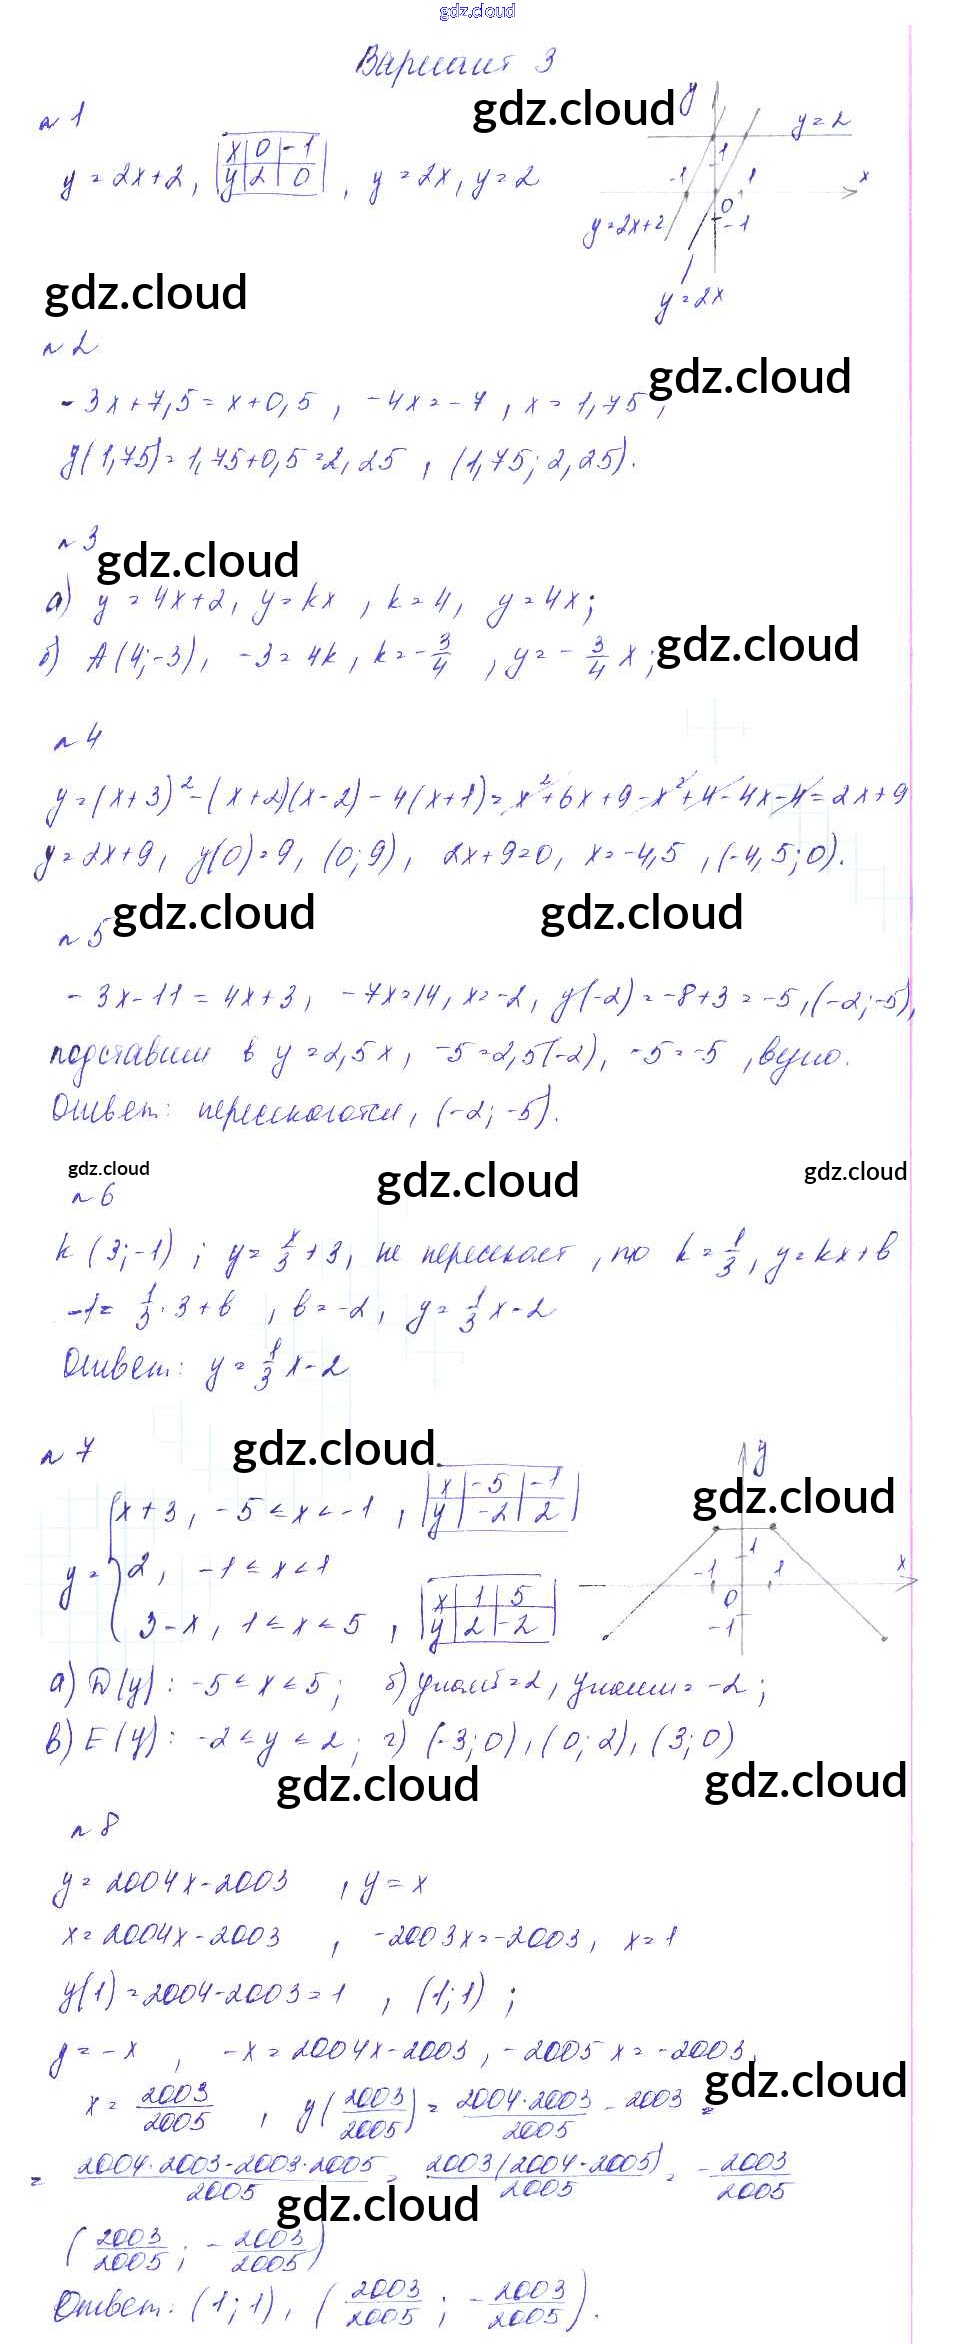 gdz.cloud
Вариант 3
gdz.cloud
№1
y = 2x+2, | x | 0 | -1 | y | 2 | 0 |, y = 2x, y = 2
y
y = 2
1
-1
1
x
0
y = 2x+2
-1
y = 2x
gdz.cloud
№2
gdz.cloud
-3x+7,5 = x+0,5, -4x = -7, x = 1,75,
y(1,75) = 1,75+0,5 = 2,25, (1,75; 2,25).
№3
gdz.cloud
а) y = 4x+2, y = kx, k = 4, y = 4x;
gdz.cloud
б) A(4;-3), -3 = 4k, k = -3/4, y = -3/4 x;
№4
y = (x+3)² - (x+2)(x-2) - 4(x+1) = x²+6x+9-x²+4-4x-4 = 2x+9
y = 2x+9, y(0) = 9, (0; 9), 2x+9=0, x = -4,5, (-4,5; 0).
gdz.cloud gdz.cloud
№5
-3x-11 = 4x+3, -7x = 14, x = -2, y(-2) = -8+3 = -5, (-2;-5),
подставим в y = 2,5x, -5 = 2,5(-2), -5 = -5, верно.
Ответ: пересекаются, (-2; -5).
gdz.cloud gdz.cloud gdz.cloud
№6
k (3; -1); y = x/3 + 3, не пересекает, то k = 1/3, y = kx+b
-1 = 1/3 · 3 + b, b = -2, y = 1/3 x - 2
Ответ: y = 1/3 x - 2
№7
gdz.cloud
y
gdz.cloud
x+3, -5 ≤ x < -1, | x | -5 | -1 | y | -2 | 2 |
y = { 2, -1 ≤ x < 1
3-x, 1 ≤ x ≤ 5, | x | 1 | 5 | y | 2 | -2 |
1
-1
1
x
0
-1
а) D(y): -5 ≤ x ≤ 5; б) yнаиб = 2, yнаим = -2;
в) E(y): -2 ≤ y ≤ 2; г) (-3; 0), (0; 2), (3; 0)
gdz.cloud gdz.cloud
№8
y = 2004x-2003, y = x
x = 2004x-2003, -2003x = -2003, x = 1
y(1) = 2004-2003 = 1, (1; 1);
y = -x, -x = 2004x-2003, -2005x = -2003,
gdz.cloud
x = 2003/2005, y(2003/2005) = 2004·2003/2005 - 2003 =
= 2004·2003-2003·2005/2005 = 2003(2004-2005)/2005 = -2003/2005
gdz.cloud
(2003/2005; -2003/2005)
Ответ: (1; 1), (2003/2005; -2003/2005).